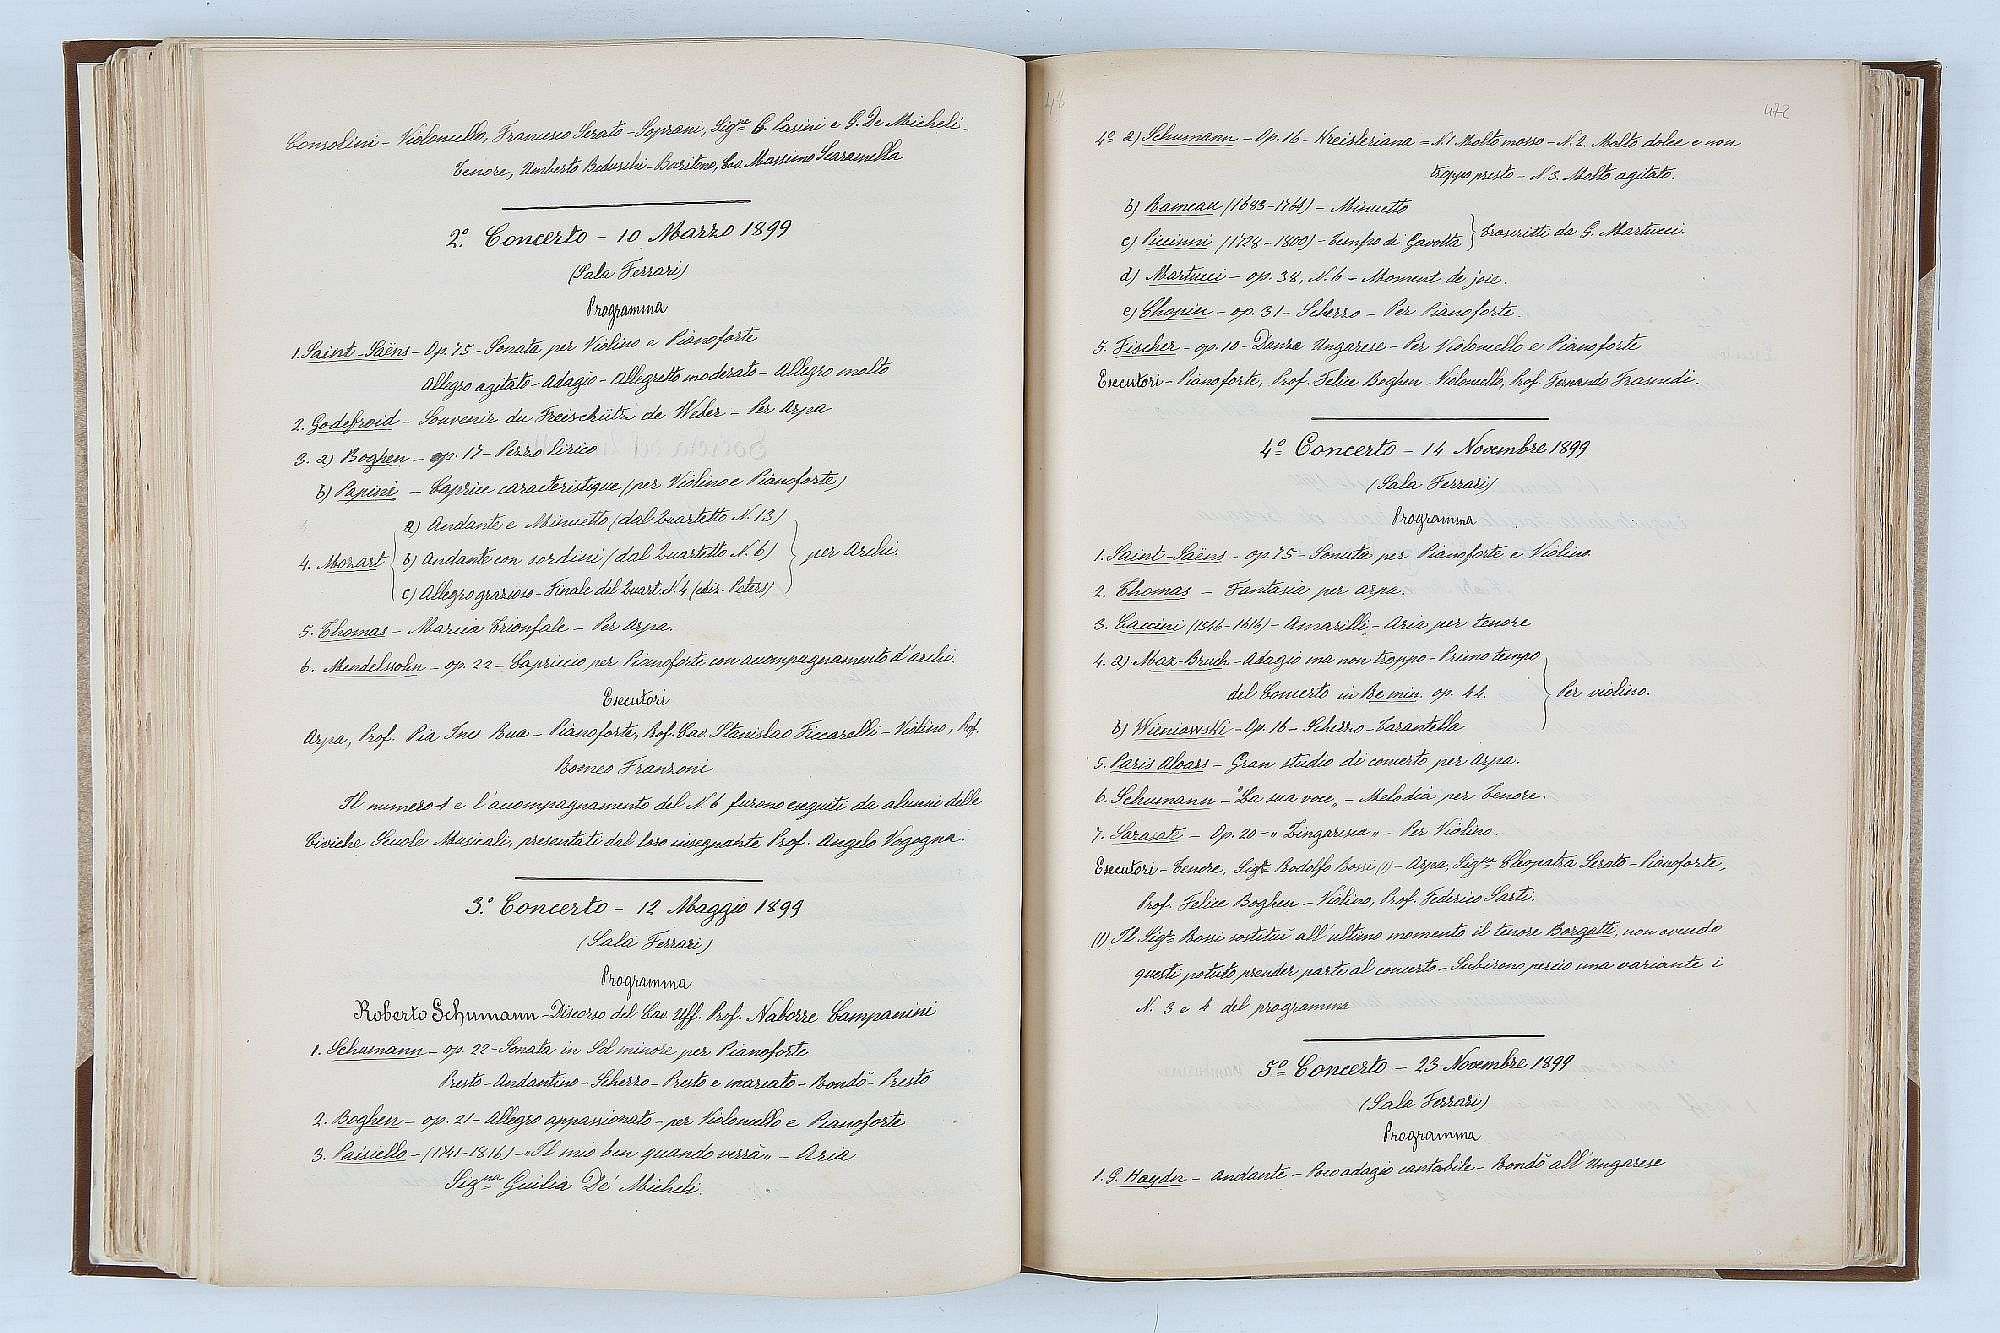 Consolini - Violoncello, Francesco Serato - Soprani, Sig.ne C. Pasini e G. De Micheli -
Tenore, Umberto - Baritono, Cav. Massimo Scaramella
2º. Concerto - 10 Marzo 1899
(Sala Ferrari)
Programma
1. Saint-Saëns - Op. 75 - Sonata per Violino e Pianoforte
Allegro agitato - Adagio - Allegretto moderato - Allegro molto
2. Godefroid - Souvenir du Freischütz de Weber - Per Arpa
3. a) Boghen - op. 17 - Pezzo lirico
b) Papini - Caprice caracteristique (per Violino e Pianoforte)
a) Andante e Minuetto (dal Quartetto N. 13)
4. Mozart b) Andante con sordini (dal Quartetto N. 6) per Archi.
c) Allegro grazioso - Finale del Quart. N. 4 (ediz. Peters)
5. Thomas - Marcia Trionfale - Per Arpa.
6. Mendelssohn - op. 22 - Capriccio per Pianoforte con accompagnamento d'archi.
Esecutori
Arpa, Prof. Pia Ines Bua - Pianoforte, Prof. Cav. Stanislao Ficcarelli - Violino, Prof.
Romeo Franzoni
Il numero 4 e l'accompagnamento del N. 6 furono eseguiti da alunni delle
Civiche Scuole Musicali, presentati dal loro insegnante Prof. Angelo Vogogna.
3º. Concerto - 12 Maggio 1899
(Sala Ferrari)
Programma
Roberto Schumann - Discorso del Cav. Uff. Prof. Naborre Campanini
1. Schumann - op. 22 - Sonata in Sol minore per Pianoforte
Presto - Andantino - Scherzo - Presto e marcato - Rondò - Presto
2. Boghen - op. 21 - Allegro appassionato - per Violoncello e Pianoforte
3. Paisiello - (1741-1816) - "Il mio ben quando verrà" - Aria
Sig.na Giulia De' Micheli.
48
472
4º a) Schumann - Op. 16 - Kreisleriana = N. 1 Molto mosso - N. 2. Molto dolce e non
troppo presto - N. 3. Molto agitato.
b) Rameau (1683-1764) - Minuetto
c) Piccinni (1728-1800) - Tempo di Gavotta Trascritti da G. Martucci.
d) Martucci - op. 38, N. 6 - Moment de joie.
e) Chopin - op. 31 - Scherzo - Per Pianoforte.
5. Fischer - op. 10 - Danza Ungarese - Per Violoncello e Pianoforte
Esecutori - Pianoforte, Prof. Felice Boghen Violoncello, Prof. Fernando
4º Concerto - 14 Novembre 1899
(Sala Ferrari)
Programma
1. Saint-Saëns - op. 75 - Sonata per Pianoforte e Violino.
2. Thomas - Fantasia per arpa.
3. Caccini (1546-1616) - Amarilli - Aria per tenore
4. a) Max-Bruch - Adagio ma non troppo - Primo tempo
del Concerto in Re min. op. 44. Per violino.
b) Wieniawski - Op. 16 - Scherzo - Tarantella
5. Paris Alvars - Gran studio di concerto per Arpa.
6. Schumann - "La sua voce" - Melodia per Tenore.
7. Sarasate - Op. 20 - "Zingaresca" - Per Violino.
Esecutori - Tenore, Sig.r Rodolfo Rossi (1) - Arpa, Sig.na Cleopatra Serato - Pianoforte,
Prof. Felice Boghen - Violino, Prof. Federico Sarti.
(1) Il Sig.r Rossi sostituì all'ultimo momento il tenore Borgatti, non avendo
questi potuto prender parte al concerto - Subirono perciò una variante i
N. 3 e 4 del programma
5º Concerto - 23 Novembre 1899
(Sala Ferrari)
Programma
1. G. Haydn - Andante - Poco adagio cantabile - Rondò all'Ungarese